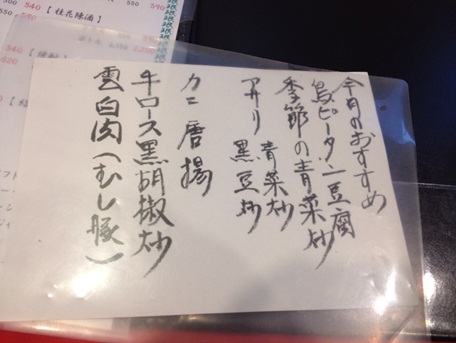 今月のおすすめ
ピータン豆腐
季節の青菜炒
青菜炒
アサリ 黒豆炒
カニ唐揚
牛ロース黒胡椒炒
雲白肉(むし豚)
540【桂花陳酒】
540